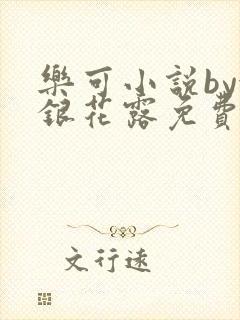 樂可小說by
銀花露免費
文行遠